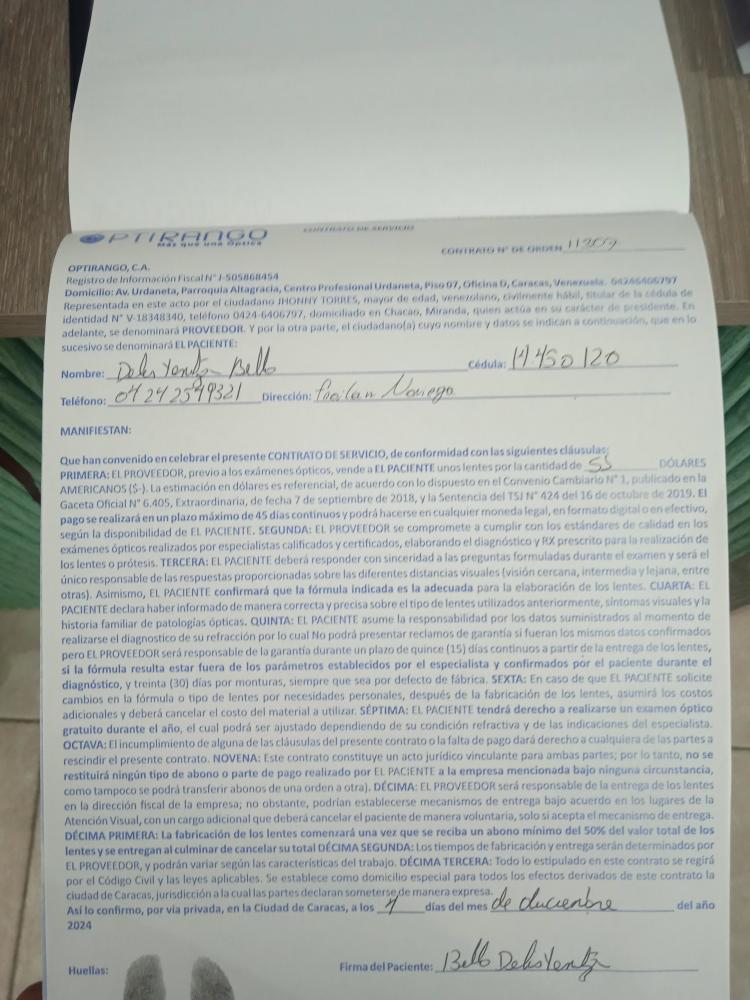 OPTIRANGO
Más que una Óptica
CONTRATO DE SERVICIO
CONTRATO N° DE ORDEN
OPTIRANGO, C.A.
Registro de Información Fiscal N° J-505868454
Domicilio: Av. Urdaneta, Parroquia Altagracia, Centro Profesional Urdaneta, Piso 07, Oficina D, Caracas, Venezuela. 04246406797
Representada en este acto por el ciudadano JHONNY TORRES, mayor de edad, venezolano, civilmente hábil, titular de la cédula de
identidad N° V-18348340, teléfono 0424-6406797, domiciliado en Chacao, Miranda, quien actúa en su carácter de presidente. En
adelante, se denominará PROVEEDOR. Y por la otra parte, el ciudadano(a) cuyo nombre y datos se indican a continuación, que en lo
sucesivo se denominará EL PACIENTE:
Nombre: Bello Cédula:
Teléfono: 04242549321 Dirección:
MANIFIESTAN:
Que han convenido en celebrar el presente CONTRATO DE SERVICIO, de conformidad con las siguientes cláusulas:
PRIMERA: EL PROVEEDOR, previo a los exámenes ópticos, vende a EL PACIENTE unos lentes por la cantidad de DÓLARES
AMERICANOS ($-). La estimación en dólares es referencial, de acuerdo con lo dispuesto en el Convenio Cambiario N° 1, publicado en la
Gaceta Oficial N° 6.405, Extraordinaria, de fecha 7 de septiembre de 2018, y la Sentencia del TSJ N° 424 del 16 de octubre de 2019. El
pago se realizará en un plazo máximo de 45 días continuos y podrá hacerse en cualquier moneda legal, en formato digital o en efectivo,
según la disponibilidad de EL PACIENTE. SEGUNDA: EL PROVEEDOR se compromete a cumplir con los estándares de calidad en los
exámenes ópticos realizados por especialistas calificados y certificados, elaborando el diagnóstico y RX prescrito para la realización de
los lentes o prótesis. TERCERA: EL PACIENTE deberá responder con sinceridad a las preguntas formuladas durante el examen y será el
único responsable de las respuestas proporcionadas sobre las diferentes distancias visuales (visión cercana, intermedia y lejana, entre
otras). Asimismo, EL PACIENTE confirmará que la fórmula indicada es la adecuada para la elaboración de los lentes. CUARTA: EL
PACIENTE declara haber informado de manera correcta y precisa sobre el tipo de lentes utilizados anteriormente, síntomas visuales y la
historia familiar de patologías ópticas. QUINTA: EL PACIENTE asume la responsabilidad por los datos suministrados al momento de
realizarse el diagnostico de su refracción por lo cual No podrá presentar reclamos de garantía si fueran los mismos datos confirmados
pero EL PROVEEDOR será responsable de la garantía durante un plazo de quince (15) días continuos a partir de la entrega de los lentes,
si la fórmula resulta estar fuera de los parámetros establecidos por el especialista y confirmados por el paciente durante el
diagnóstico, y treinta (30) días por monturas, siempre que sea por defecto de fábrica. SEXTA: En caso de que EL PACIENTE solicite
cambios en la fórmula o tipo de lentes por necesidades personales, después de la fabricación de los lentes, asumirá los costos
adicionales y deberá cancelar el costo del material a utilizar. SÉPTIMA: EL PACIENTE tendrá derecho a realizarse un examen óptico
gratuito durante el año, el cual podrá ser ajustado dependiendo de su condición refractiva y de las indicaciones del especialista.
OCTAVA: El incumplimiento de alguna de las cláusulas del presente contrato o la falta de pago dará derecho a cualquiera de las partes a
rescindir el presente contrato. NOVENA: Este contrato constituye un acto jurídico vinculante para ambas partes; por lo tanto, no se
restituirá ningún tipo de abono o parte de pago realizado por EL PACIENTE a la empresa mencionada bajo ninguna circunstancia,
como tampoco se podrá transferir abonos de una orden a otra). DÉCIMA: EL PROVEEDOR será responsable de la entrega de los lentes
en la dirección fiscal de la empresa; no obstante, podrían establecerse mecanismos de entrega bajo acuerdo en los lugares de la
Atención Visual, con un cargo adicional que deberá cancelar el paciente de manera voluntaria, solo si acepta el mecanismo de entrega.
DÉCIMA PRIMERA: La fabricación de los lentes comenzará una vez que se reciba un abono mínimo del 50% del valor total de los
lentes y se entregan al culminar de cancelar su total DÉCIMA SEGUNDA: Los tiempos de fabricación y entrega serán determinados por
EL PROVEEDOR, y podrán variar según las características del trabajo. DÉCIMA TERCERA: Todo lo estipulado en este contrato se regirá
por el Código Civil y las leyes aplicables. Se establece como domicilio especial para todos los efectos derivados de este contrato la
ciudad de Caracas, jurisdicción a la cual las partes declaran someterse de manera expresa.
Así lo confirmo, por vía privada, en la Ciudad de Caracas, a los días del mes de del año
2024
Huellas: Firma del Paciente: Bello